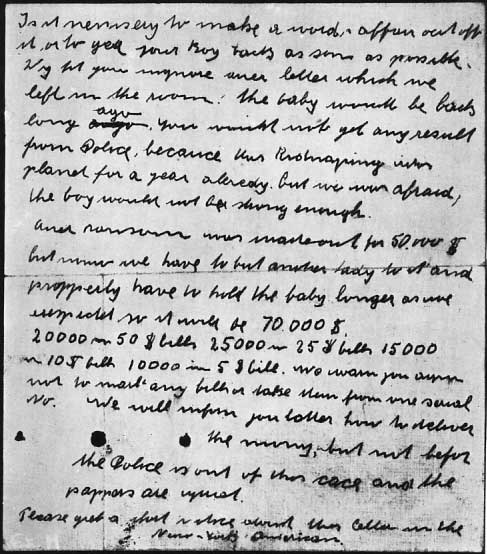 Is it nessisery to make a world's affair out off
it, or to get your boy back as son as possible.
Wy did you ingnore ouer letter which we
left in the room. the baby would be back
long ago. You would not get any result
from Police, because this Kidnaping was
planed for a year allredy. but we was afraid,
the boy would not be strong enough.
ouer ransom was made out for 50.000 $
but now we have to put another lady to it and
propperly have to hold the baby longer as we
expected so it will be 70.000 $.
20000 in 50 $ bills 25000 in 25 $ bills 15000
in 10 $ bills 10000 in 5 $ bill. We warn you again
not to mark any bills or take them from one serial
No. We will inform you latter how to deliver
the mony, but not befor
the Police is out of this cace and the
pappers are quiet.
Please get a short notice about this letter in the
New-York American.